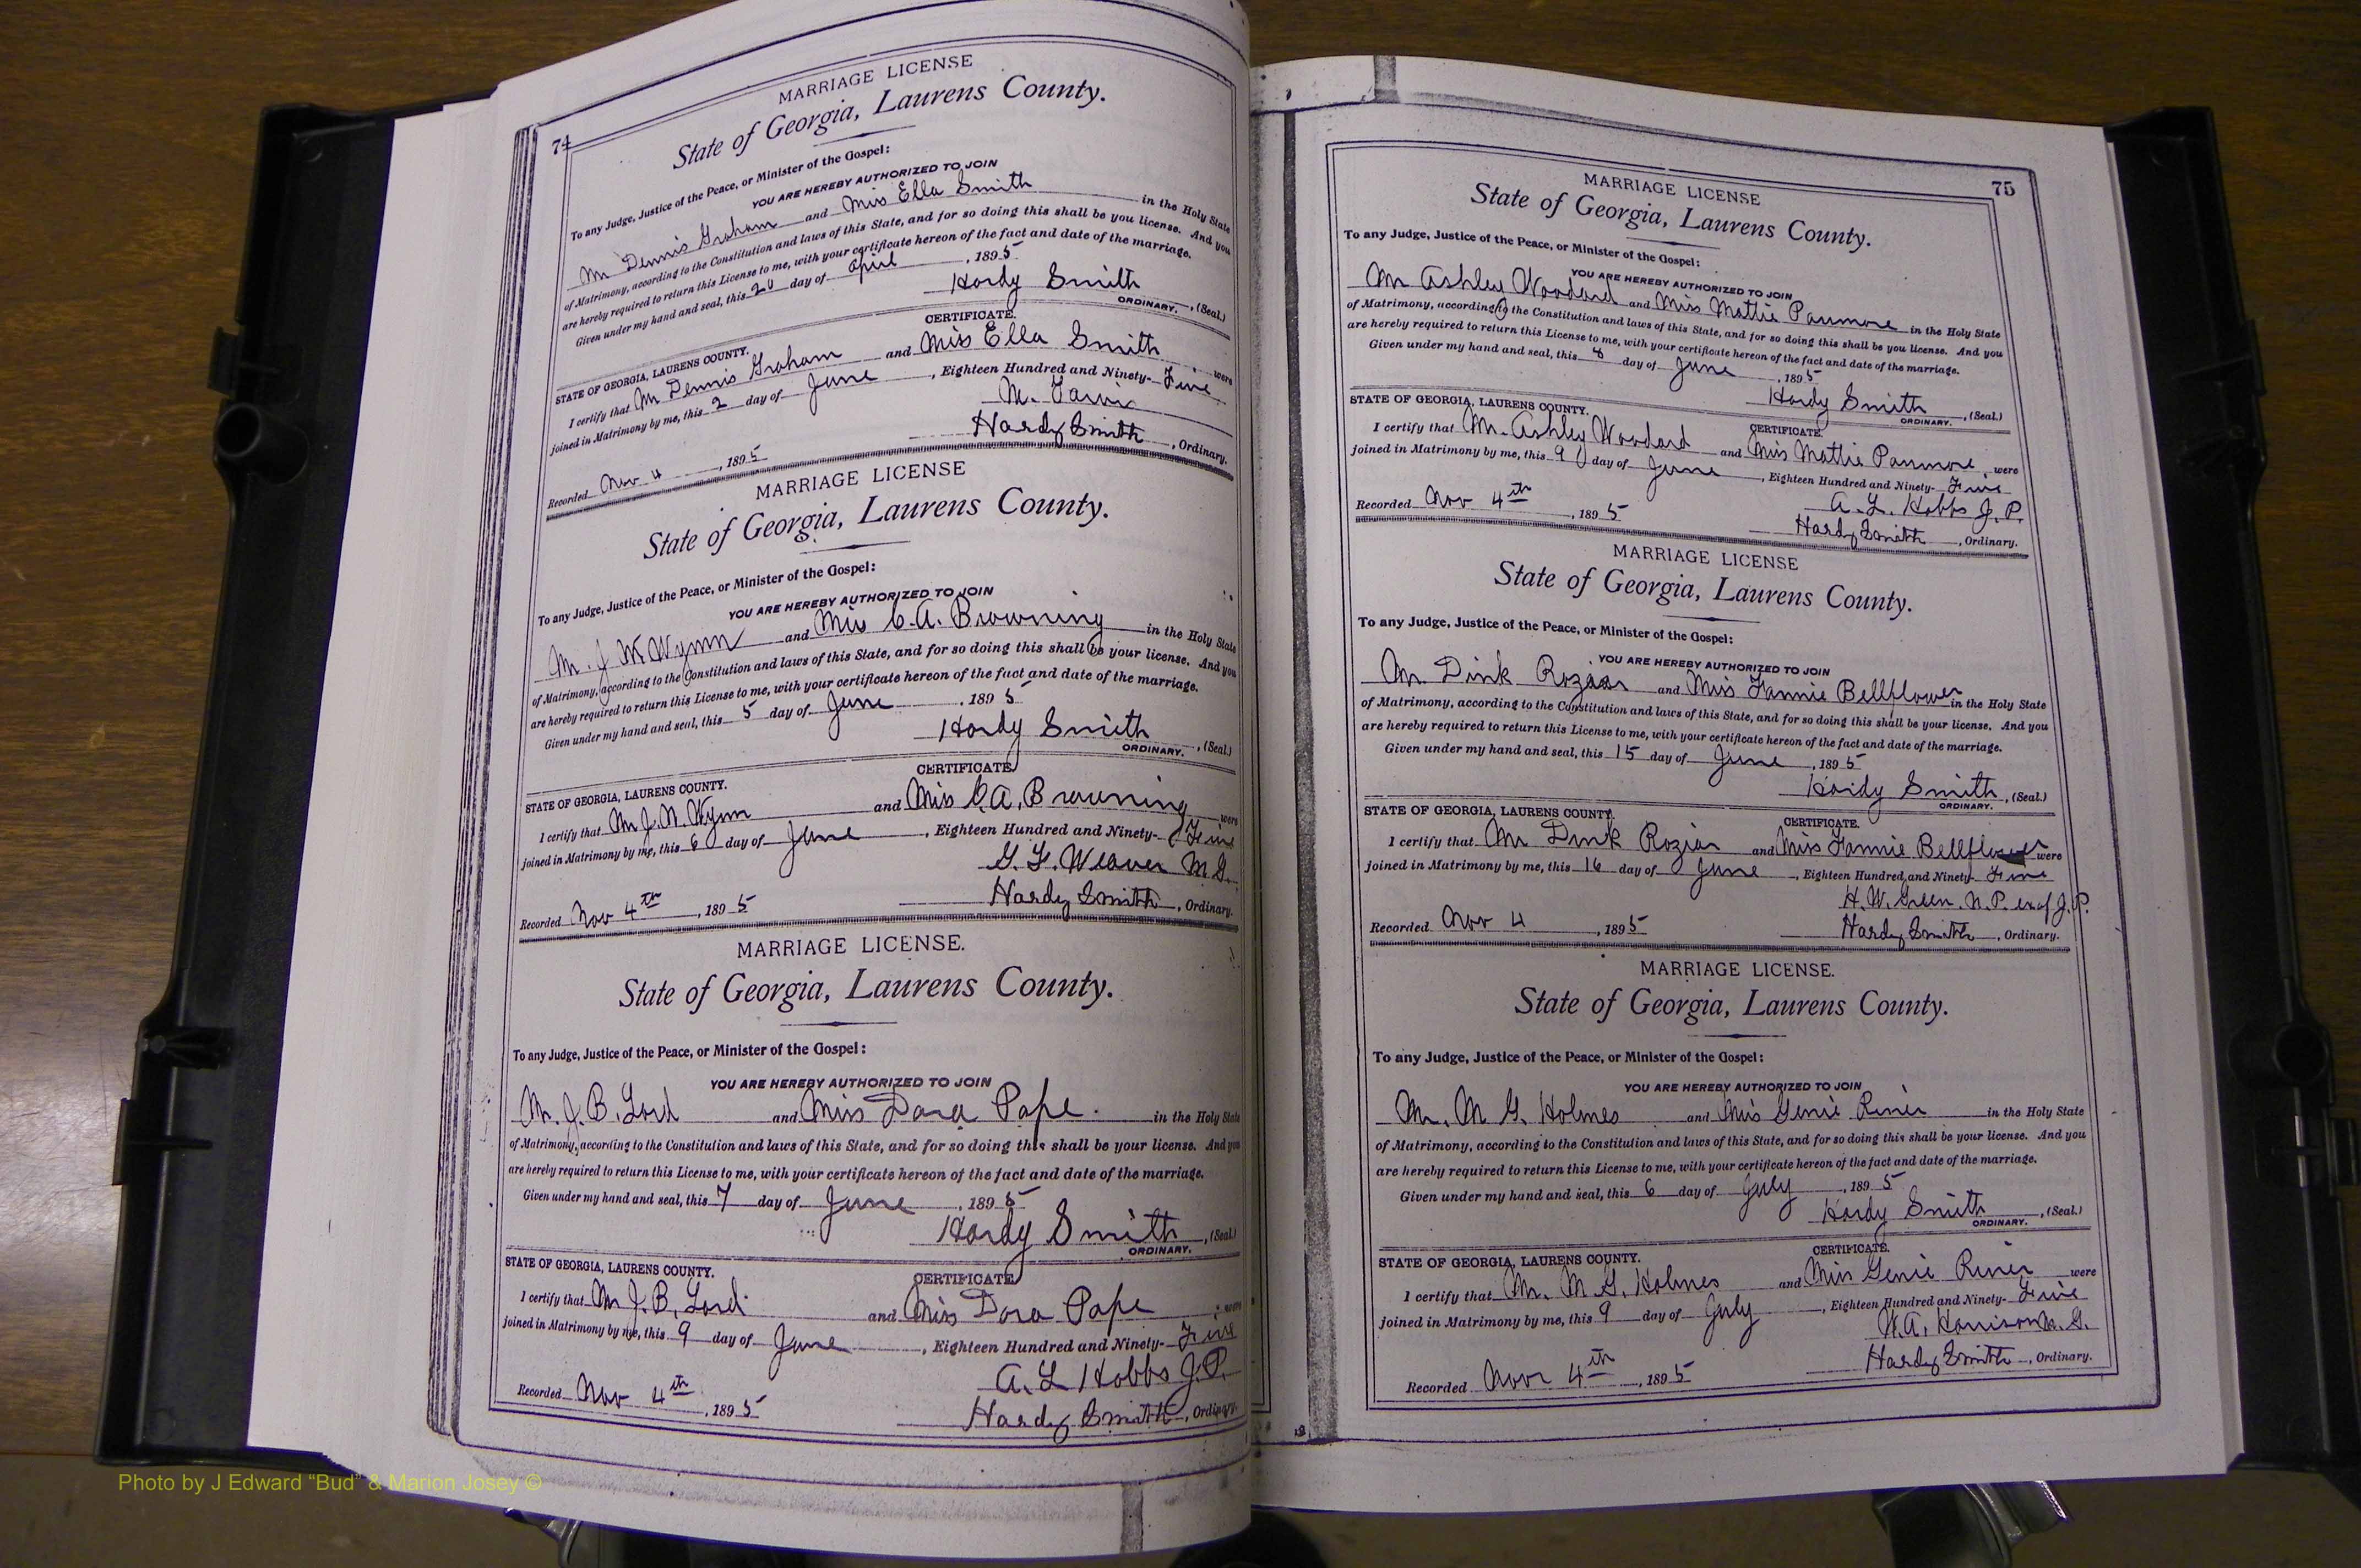 74
MARRIAGE LICENSE
State of Georgia, Laurens County.
To any Judge, Justice of the Peace, or Minister of the Gospel:
YOU ARE HEREBY AUTHORIZED TO JOIN
Mr Dennis Graham and Miss Ella Smith in the Holy State
of Matrimony, according to the Constitution and laws of this State, and for so doing this shall be you license. And you
are hereby required to return this License to me, with your certificate hereon of the fact and date of the marriage.
Given under my hand and seal, this 20 day of April, 1895
Hardy Smith, (Seal.)
ORDINARY.
CERTIFICATE.
STATE OF GEORGIA, LAURENS COUNTY.
I certify that Mr Dennis Graham and Miss Ella Smith were
joined in Matrimony by me, this 2 day of June, Eighteen Hundred and Ninety-Five
M.
Hardy Smith, Ordinary.
Recorded Nov 4, 1895
MARRIAGE LICENSE
State of Georgia, Laurens County.
To any Judge, Justice of the Peace, or Minister of the Gospel:
YOU ARE HEREBY AUTHORIZED TO JOIN
Mr. J Wynn and Miss C. A. Browning in the Holy State
of Matrimony, according to the Constitution and laws of this State, and for so doing this shall be your license. And you
are hereby required to return this License to me, with your certificate hereon of the fact and date of the marriage.
Given under my hand and seal, this 5 day of June, 1895
Hardy Smith, (Seal.)
ORDINARY.
CERTIFICATE.
STATE OF GEORGIA, LAURENS COUNTY.
I certify that Mr J. Wynn and Miss C. A. Browning were
joined in Matrimony by me, this 6 day of June, Eighteen Hundred and Ninety-Five
G. F. Weaver M. G.
Hardy Smith, Ordinary.
Recorded Nov 4th, 1895
MARRIAGE LICENSE.
State of Georgia, Laurens County.
To any Judge, Justice of the Peace, or Minister of the Gospel:
YOU ARE HEREBY AUTHORIZED TO JOIN
Mr. J. B. Lord and Miss Dora Pope. in the Holy State
of Matrimony, according to the Constitution and laws of this State, and for so doing this shall be your license. And you
are hereby required to return this License to me, with your certificate hereon of the fact and date of the marriage.
Given under my hand and seal, this 7 day of June, 1895
Hardy Smith, (Seal.)
ORDINARY.
CERTIFICATE.
STATE OF GEORGIA, LAURENS COUNTY.
I certify that Mr J. B. Lord and Miss Dora Pope were
joined in Matrimony by me, this 9 day of June, Eighteen Hundred and Ninety-Five
A. L Hobbs J. P.
Hardy Smith, Ordinary.
Recorded Nov 4th, 1895
75
MARRIAGE LICENSE
State of Georgia, Laurens County.
To any Judge, Justice of the Peace, or Minister of the Gospel:
YOU ARE HEREBY AUTHORIZED TO JOIN
Mr Ashley Woodard and Miss Mattie Parmore in the Holy State
of Matrimony, according to the Constitution and laws of this State, and for so doing this shall be you license. And you
are hereby required to return this License to me, with your certificate hereon of the fact and date of the marriage.
Given under my hand and seal, this 8 day of June, 1895
Hardy Smith, (Seal.)
ORDINARY.
STATE OF GEORGIA, LAURENS COUNTY.
CERTIFICATE.
I certify that Mr. Ashley Woodard and Miss Mattie Parmore, were
joined in Matrimony by me, this 9 day of June, Eighteen Hundred and Ninety-Five
A. L. Hobbs J. P.
Recorded Nov 4th, 1895
Hardy Smith, Ordinary.
MARRIAGE LICENSE
State of Georgia, Laurens County.
To any Judge, Justice of the Peace, or Minister of the Gospel:
YOU ARE HEREBY AUTHORIZED TO JOIN
Mr. Dink Roziar and Miss Fannie Bellflower in the Holy State
of Matrimony, according to the Constitution and laws of this State, and for so doing this shall be your license. And you
are hereby required to return this License to me, with your certificate hereon of the fact and date of the marriage.
Given under my hand and seal, this 15 day of June, 1895
Hardy Smith, (Seal.)
ORDINARY.
STATE OF GEORGIA, LAURENS COUNTY.
CERTIFICATE.
I certify that Mr Dink Roziar and Miss Fannie Bellflower were
joined in Matrimony by me, this 16 day of June, Eighteen Hundred and Ninety-Five
H. W. Green. N. P. ex of J. P.
Recorded Nov 4, 1895
Hardy Smith, Ordinary.
MARRIAGE LICENSE.
State of Georgia, Laurens County.
To any Judge, Justice of the Peace, or Minister of the Gospel:
YOU ARE HEREBY AUTHORIZED TO JOIN
Mr. M G. Holmes and Miss Genie Riner in the Holy State
of Matrimony, according to the Constitution and laws of this State, and for so doing this shall be your license. And you
are hereby required to return this License to me, with your certificate hereon of the fact and date of the marriage.
Given under my hand and seal, this 6 day of July, 1895
Hardy Smith, (Seal.)
ORDINARY.
CERTIFICATE.
STATE OF GEORGIA, LAURENS COUNTY.
I certify that Mr. M G. Holmes and Miss Genie Riner were
joined in Matrimony by me, this 9 day of July, Eighteen Hundred and Ninety-Five
W. A. Harrison M. G.
Hardy Smith, Ordinary.
Recorded Nov 4th, 1895
Photo by J Edward “Bud” & Marion Josey ©